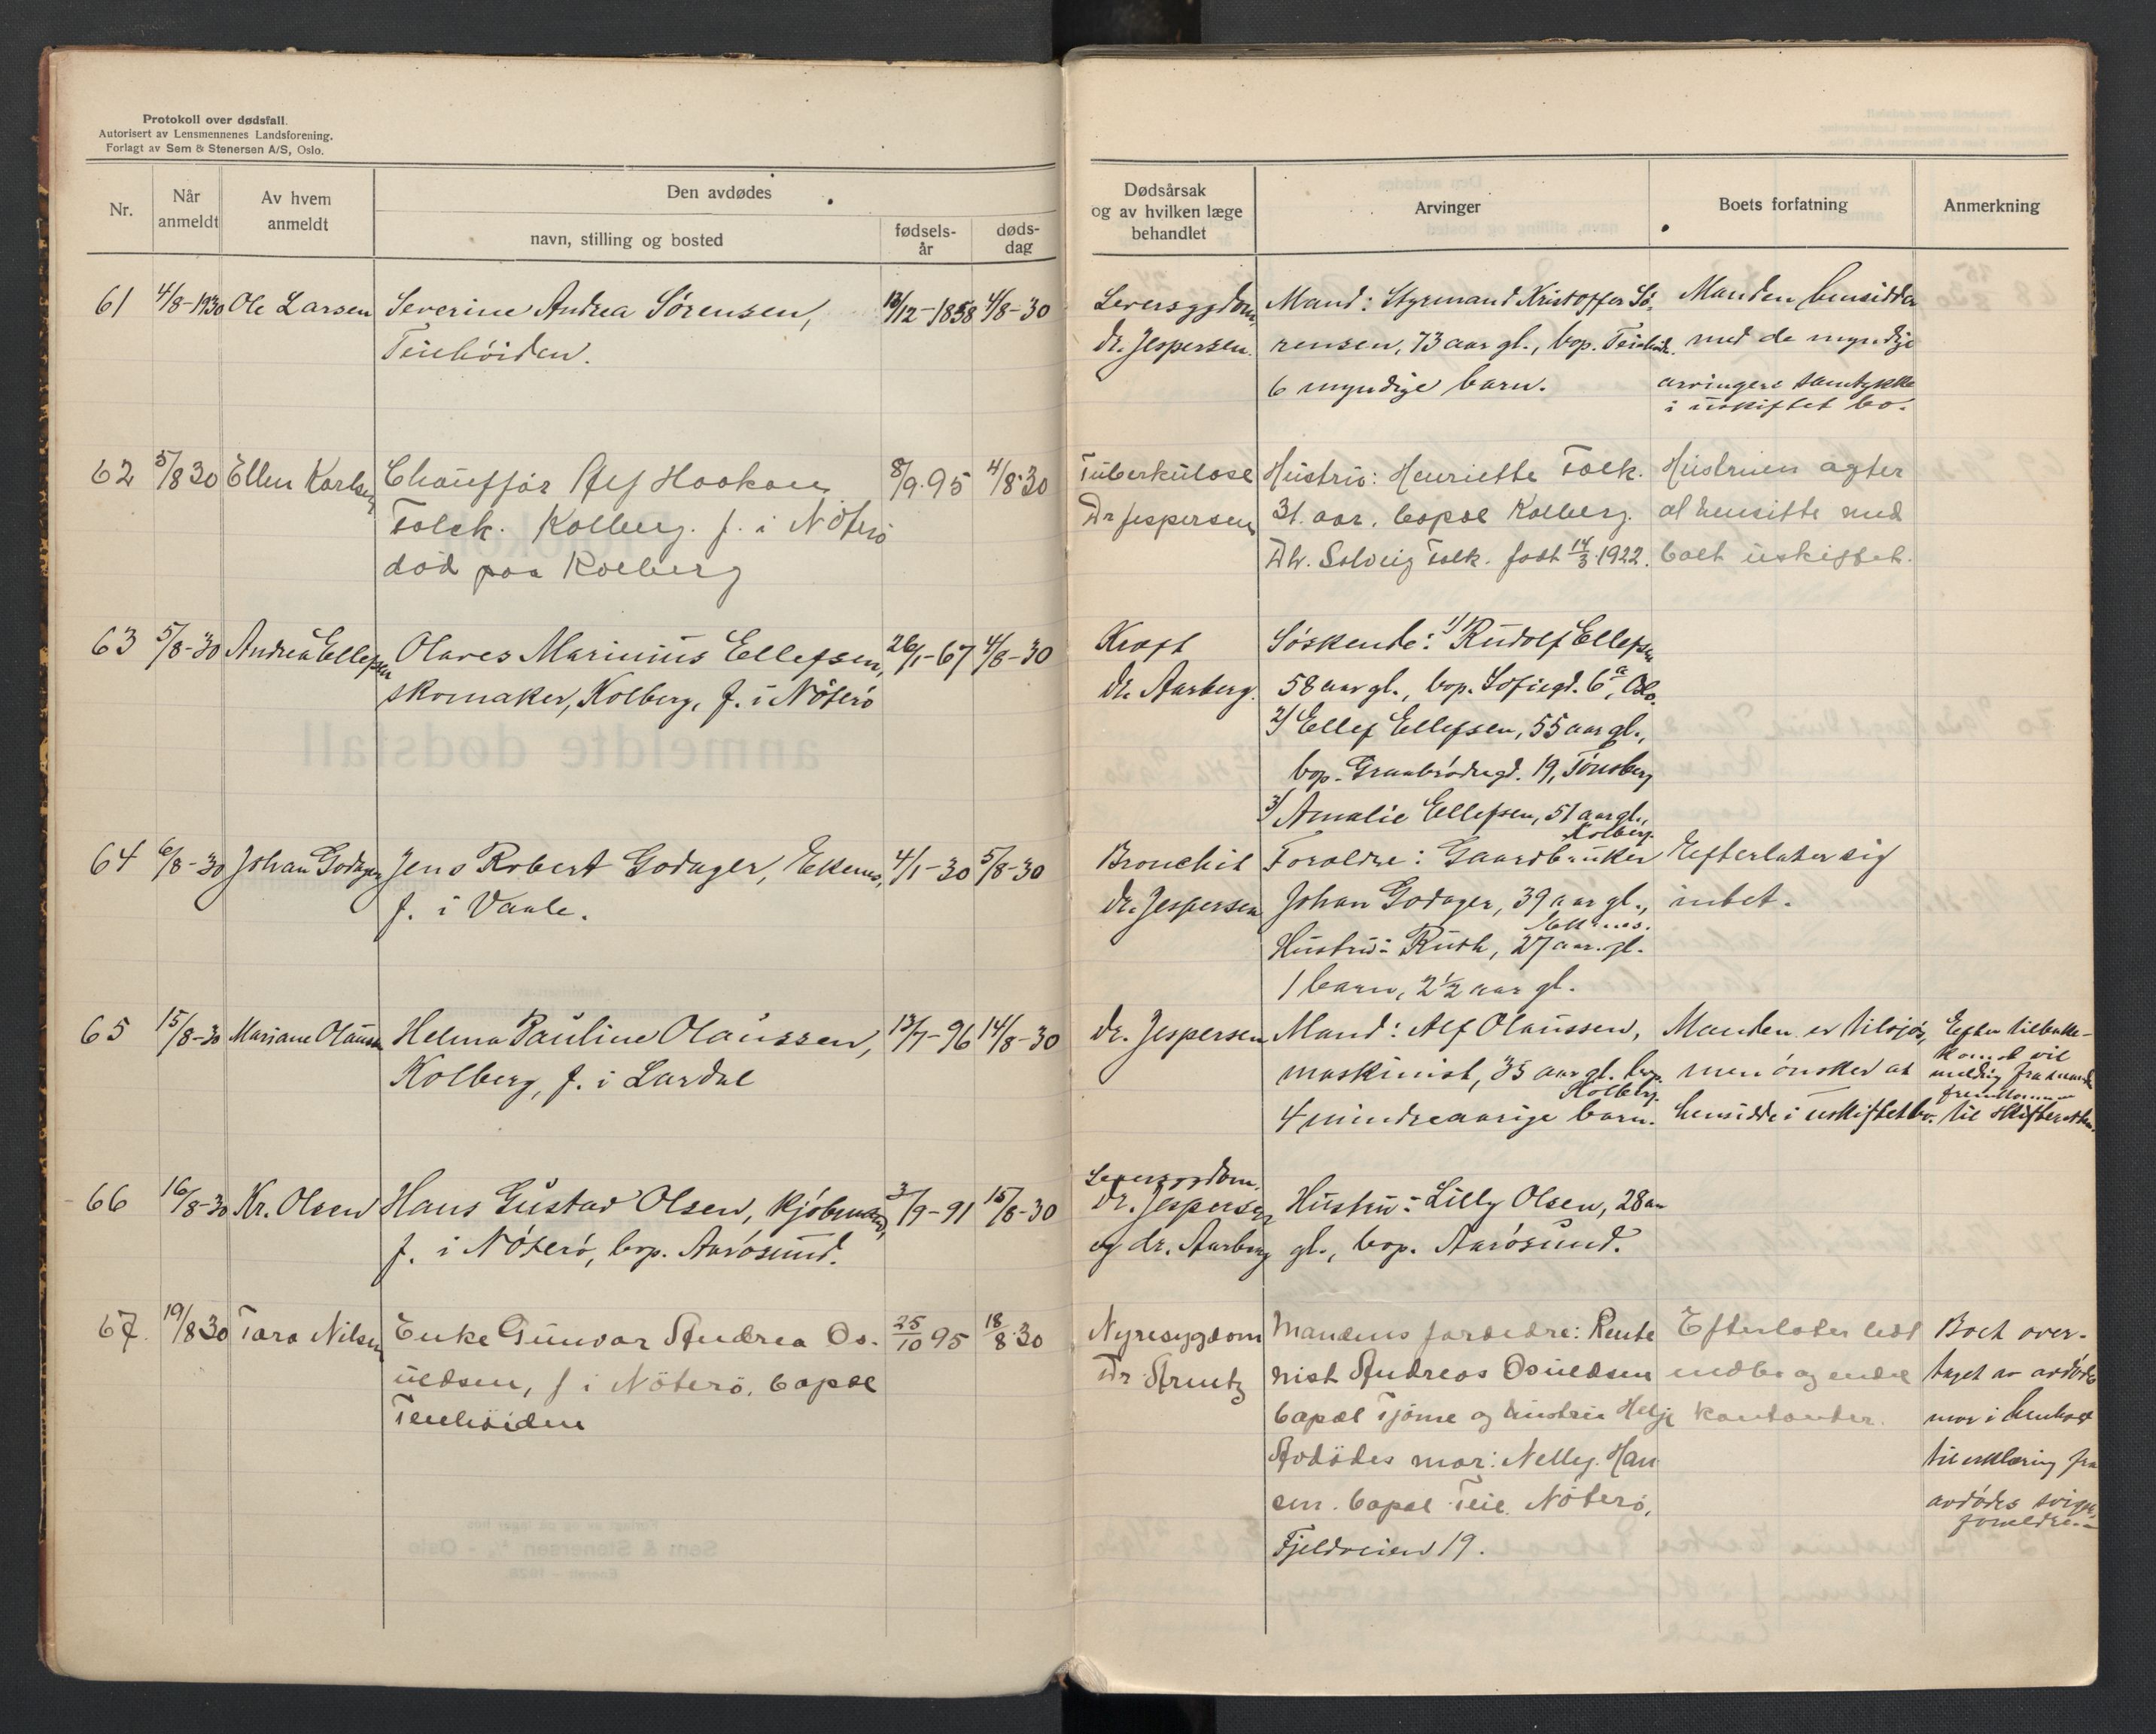 Protokoll over dødsfall.
Autorisert av Lensmennenes Landsforening.
Forlagt av Sem & Stenersen A/S, Oslo.
Nr.
Når anmeldt
Av hvem anmeldt
Den avdødes
navn, stilling og bosted
fødsels-
år
døds-
dag
Dødsårsak
og av hvilken læge
behandlet
Arvinger
Boets forfatning
Anmerkning
61 4/8-1930 Ole Larsen
Severine Andrea Sørensen,
Teiehöiden.
13/12-1858 4/8-30
Leversygdom,
dr. Jespersen.
Mand: Styrmand Kristoffer Sö-
rensen, 73 aar gl., bop. Teiehöid.
6 myndige barn.
Manden hensidder
med de myndige
arvingers samtykke
i uskiftet bo.
62 5/8 30 Ellen Karlsen
Chaufför Alf Haakon
Falck. Kolberg. f. i Nöterö
död paa Kolberg
8/9.95 4/8.30
Tuberkulose
Dr Jespersen
Hustru: Henriette Falk.
31. aar, bopæl Kolberg.
Dtr. Solveig Falk. født 14/3.1922.
Hustruen agter
at hensitte med
boet uskiftet.
63 5/8-30 Andrea Ellefsen
Olaves Marinius Ellefsen,
skomaker, Kolberg, f. i Nöterö
26/1-67 4/8-30
Kræft
dr. Aarberg.
Söskende: 1/ Rudolf Ellefsen
58 aar gl., bop. Sofiegd. 6a, Oslo.
2/ Ellef Ellefsen, 55 aar gl.,
bop. Graabrödregd. 19, Tönsberg
3/ Amalie Ellefsen, 51 aar gl.,
Kolberg.
64 6/8-30 Johan Godager
Jens Robert Godager, Ekenes,
f. i Vaale.
4/1-30 5/8-30
Bronchit
dr. Jespersen
Foraldre: Gaardbruker
Johan Godager, 39 aar gl.,
Ekenes.
Hustru: Ruth, 27 aar. gl.
1 barn, 2½ aar gl.
Efterlater sig
intet.
65 15/8-30 Mariane Olaussen
Helma Pauline Olaussen,
Kolberg, f. i Lardal
13/7-96 14/8-30
dr. Jespersen
Mand: Alf Olaussen,
maskinist, 35 aar gl. bop.
Kolberg.
4 mindreaarige barn.
Manden er tilsjös,
men önsker at
hensidde i uskiftet bo.
Efter tilbake-
komst vil
melding fra manden
fremkomme
til skifteretten.
66 16/8-30 Kr. Olsen
Hans Gustav Olsen, kjöbmand,
f. i Nöterö, bop. Aarösund.
3/9-91 15/8-30
Leversygdom.
dr. Jespersen
og dr. Aarberg
Hustru: Lilly Olsen, 28 aar
gl., bop. Aarösund.
67. 19/8 30 Tara Nilsen
Enke Gunvor Andrea Os-
uldsen, f i Nöterö, bopæl
Teiehöiden
25/10 95 18/8.30
Nyresygdom
Dr Arentz
Mandens foreldre: Rente
nist Andreas Osuldsen
bopæl Tjöme og hustru Helje
Avdödes mor: Nelly. Han
sen. bopæl Teie. Nöterö,
Fjeldveien 19.
Efterlater lidt
indbo og endel
kontanter.
Boet over-
taget av avdödes
mor i henhold
til erklæring fra
avdödes sviger-
foreldre.-